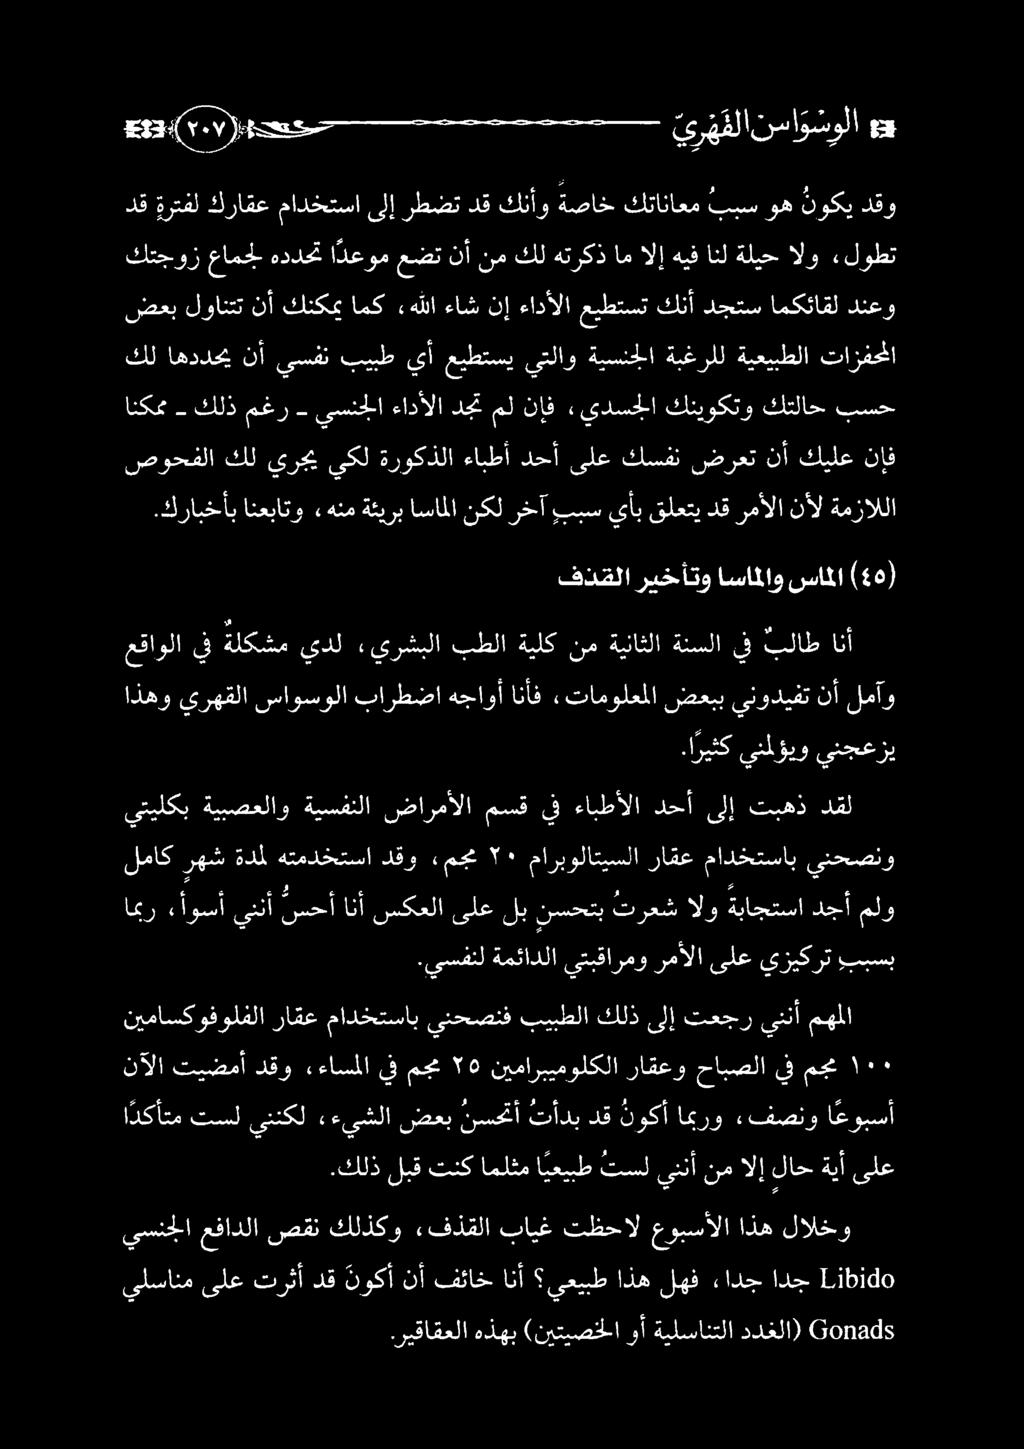 الوِسْوَاسُ القَهْرِيّ ٢٠٧
وقد يكونُ هو سببُ معاناتك خاصةً وأنك قد تضطر إلى استخدام عقارك لفترةٍ قد
تطول، ولا حيلة لنا فيه إلا ما ذكرته لك من أن تضع موعدًا تحدده لجماع زوجتك
وعند لقائكما ستجد أنك تستطيع الأداء إن شاء الله، كما يمكنك أن تتناول بعض
المحفزات الطبيعية للرغبة الجنسية والتي يستطيع أي طبيب نفسي أن يحددها لك
حسب حالتك وتكوينك الجسدي، فإن لم تجد الأداء الجنسي - رغم ذلك - ممكنا
فإن عليك أن تعرض نفسك على أحد أطباء الذكورة لكي يجري لك الفحوص
اللازمة لأن الأمر قد يتعلق بأي سببٍ آخر لكن الماسا بريئة منه، وتابعنا بأخبارك.
(٤٥) الماس والماسا وتأخير القذف
أنا طالبٌ في السنة الثانية من كلية الطب البشري، لدي مشكلةٌ في الواقع
وآمل أن تفيدوني ببعض المعلومات، فأنا أواجه اضطراب الوسواس القهري وهذا
يزعجني ويؤلمني كثيرًا.
لقد ذهبت إلى أحد الأطباء في قسم الأمراض النفسية والعصبية بكليتي
ونصحني باستخدام عقار السيتالوبرام ٢٠ مجم، وقد استخدمته لمدة شهرٍ كامل
ولم أجد استجابةً ولا شعرتُ بتحسنٍ بل على العكس أنا أحسُّ أنني أسوأ، ربما
بسببِ تركيزي على الأمر ومراقبتي الدائمة لنفسي.
المهم أنني رجعت إلى ذلك الطبيب فنصحني باستخدام عقار الفلوفوكسامين
١٠٠ مجم في الصباح وعقار الكلوميبرامين ٢٥ مجم في المساء، وقد أمضيت الآن
أسبوعًا ونصف، وربما أكونُ قد بدأتُ أتحسنُ بعض الشيء، لكنني لست متأكدًا
على أية حالٍ إلا من أنني لستُ طبيعيًا مثلما كنت قبل ذلك.
وخلال هذا الأسبوع لاحظت غياب القذف، وكذلك نقص الدافع الجنسي
Libido جدا جدا، فهل هذا طبيعي؟ أنا خائف أن أكونَ قد أثرت على مناسلي
Gonads (الغدد التناسلية أو الخصيتين) بهذه العقاقير.